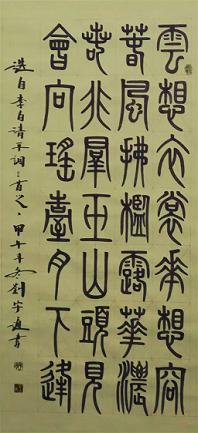 雲想衣裳華想容
春風拂檻露華濃
若非羣玉山頭見
會向瑤臺月下逢
選自李白清平調三首之一 甲午年冬劉書